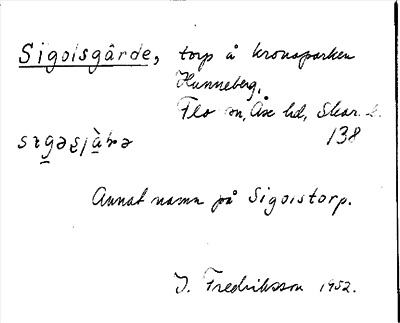 Sigolsgärde, torp å kronoparken
Hunneberg,
Flo sn, Åse hd, Skar. l.
138
Annat namn på Sigolstorp.
J. Fredriksson 1952.